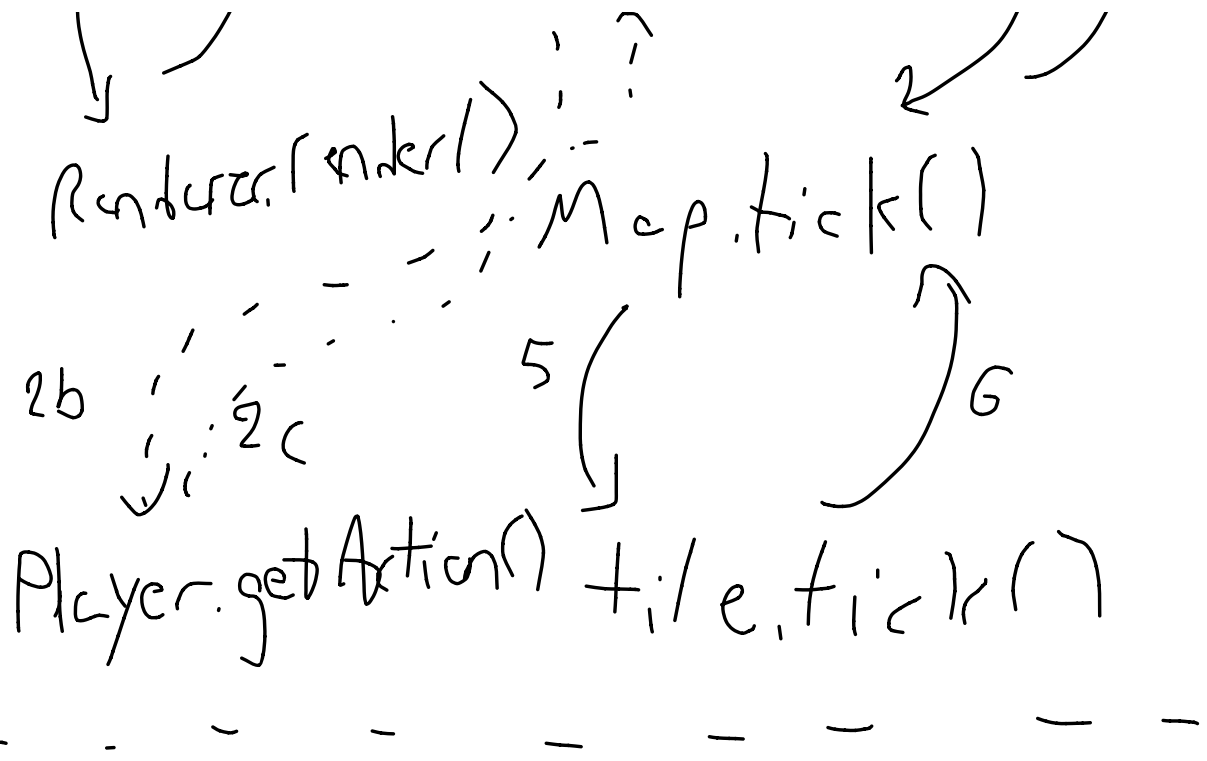 Renderer.render()
Map.tick()
5
2b
2c
6
Player.getAction()
tile.tick()